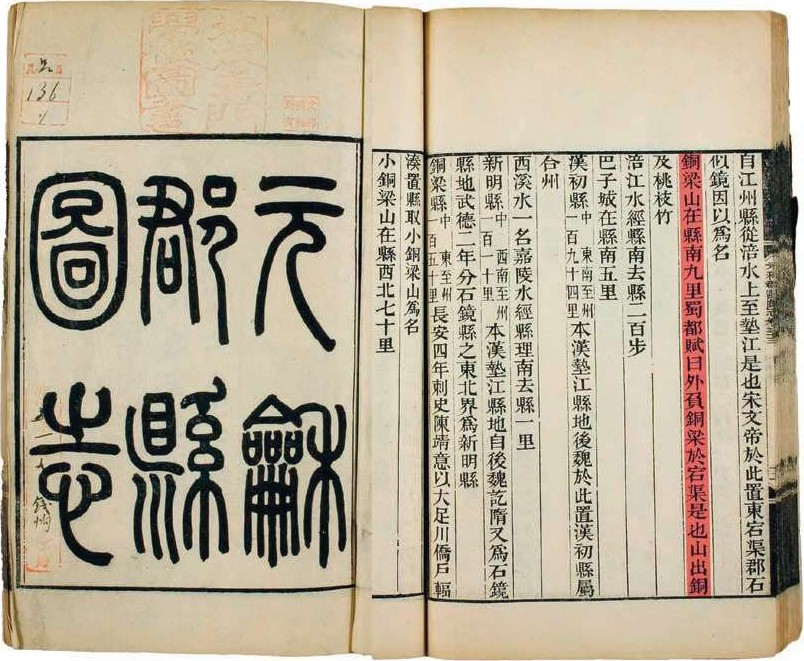 自江州縣從涪水上至墊江是也宋文帝於此置東宕渠郡石
似鏡因以爲名
銅梁山在縣南九里蜀都賦曰外負銅梁於宕渠是也山出銅
及桃枝竹
涪江水經縣南去縣二百步
巴子城在縣南五里
漢初縣中 東南至州一百九十四里本漢墊江縣地後魏於此置漢初縣屬
合州
西溪水一名嘉陵水經縣理南去縣一里
新明縣中 西南至州一百一十里本漢墊江縣地自後魏訖隋又爲石鏡
縣地武德二年分石鏡縣之東北界爲新明縣
銅梁縣中 東至州一百五十里長安四年刺史陳靖意以大足川僑戶輻
湊置縣取小銅梁山爲名
小銅梁山在縣西北七十里
元龢
郡縣
圖志
136